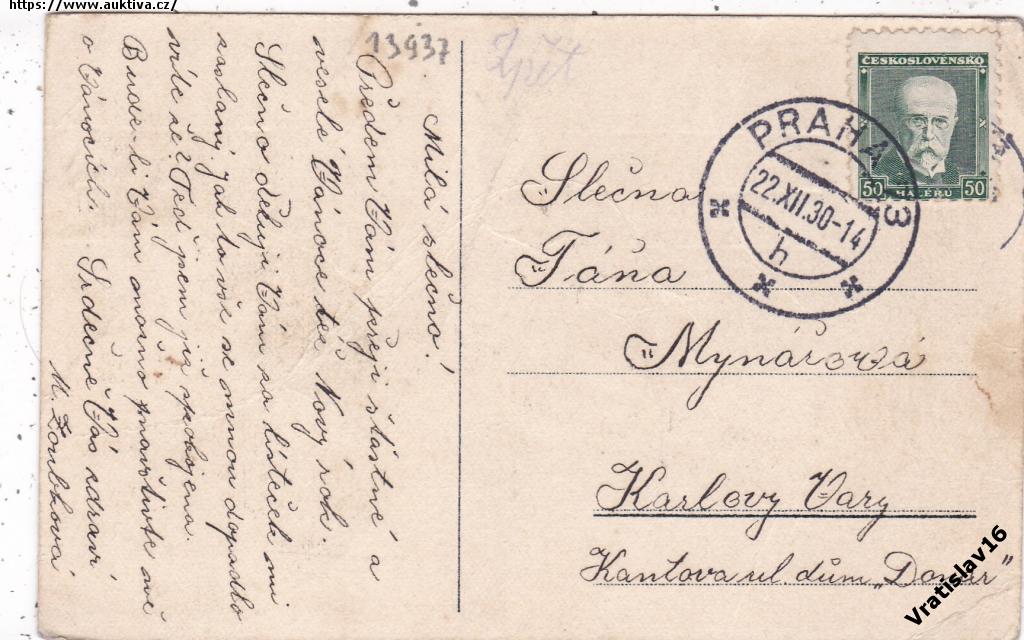 https://www.auktiva.cz/
13937
Zpět
Milá slečno!
Předem Vám přeji šťastné a
veselé Vánoce též Nový rok.
Slečno děkuji Vám za lísteček mi
zaslaný jak to vše se mnou dopadlo
víte že? Teď jsem již spokojena.
Bude-li Vám možno navštivte mě
o Vánocích. Srdečně Vás zdraví
M. Zoubková
ČESKOSLOVENSKO
50 HALÉŘŮ 50
PRAHA 3
22.XII.30-14
h
Slečna
Táňa
Mynářová
Karlovy Vary
Kantova ul. dům „Domar"
Vratislav16